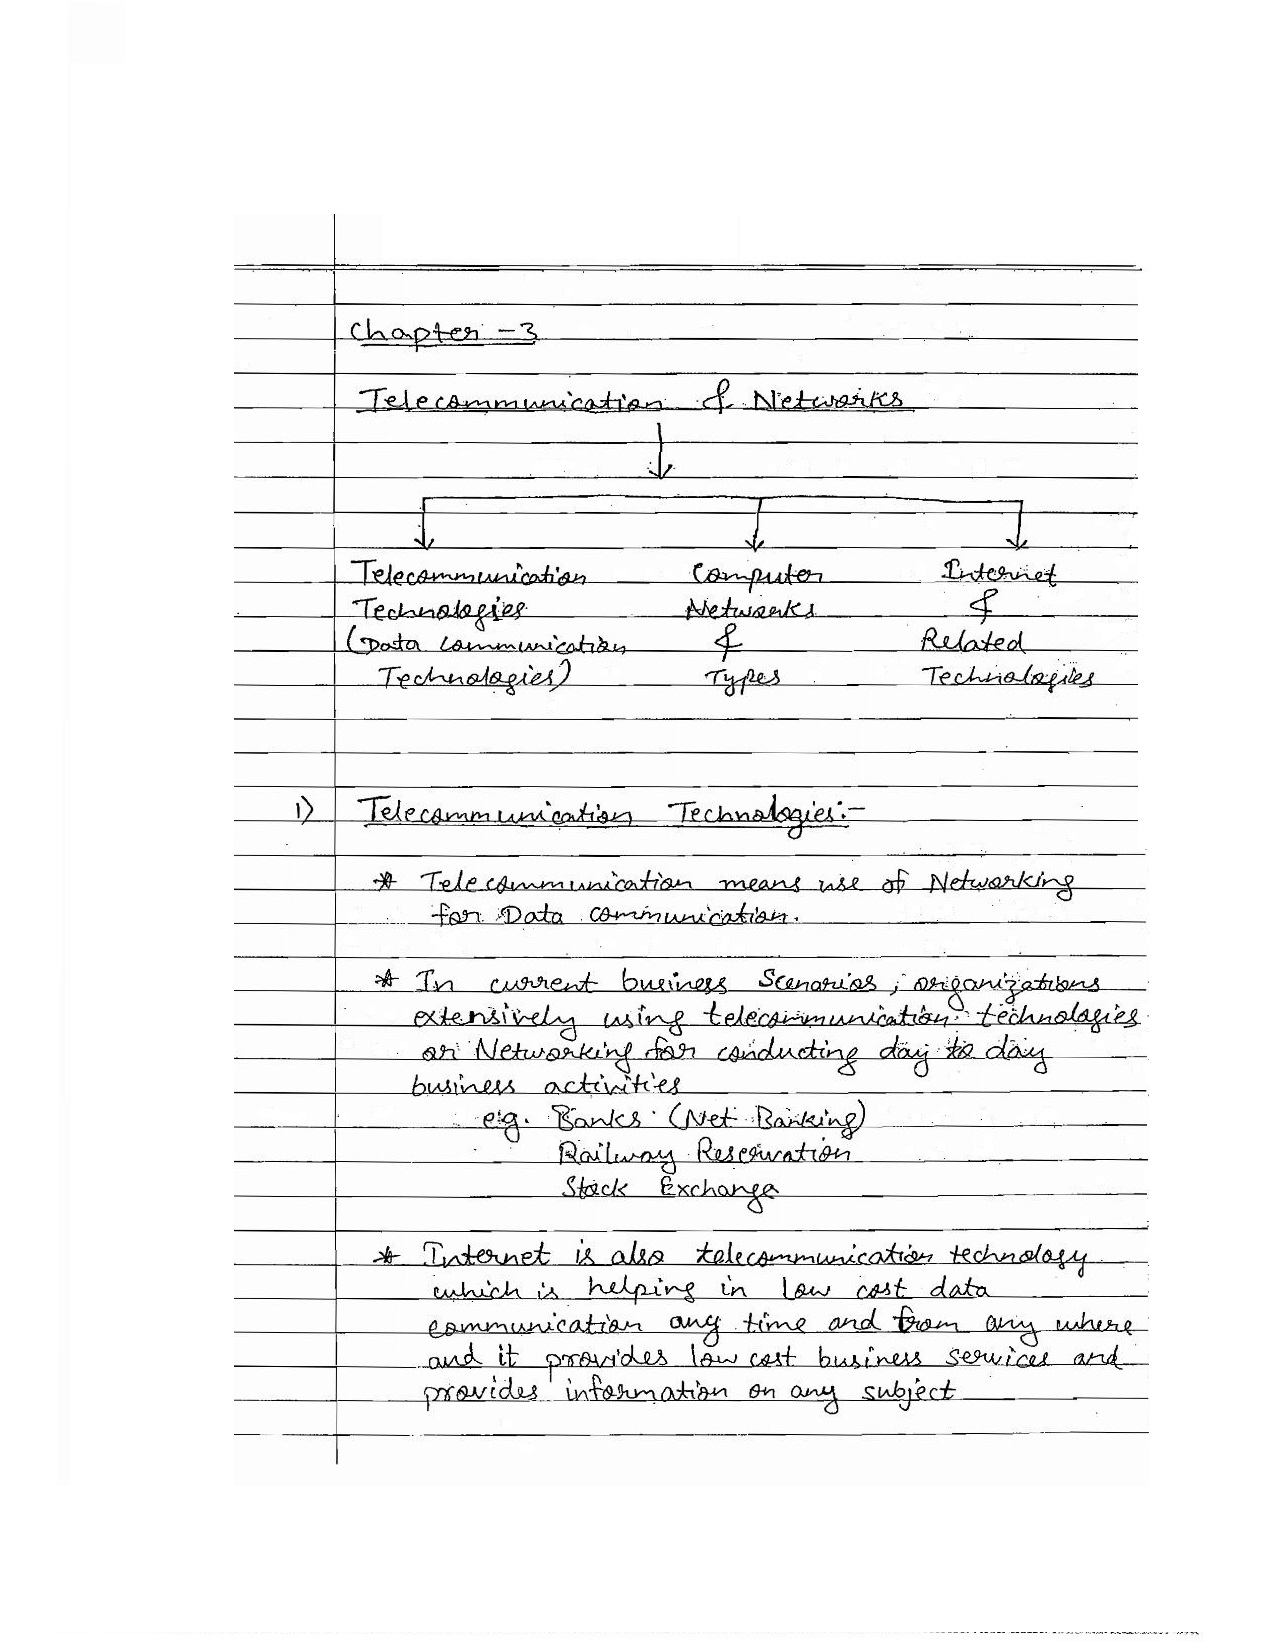 Chapter - 3
Telecommunication & Networks
Telecommunication Computer Internet
Technologies Networks &
(Data Communication & Related
Technologies) Types Technologies
1) Telecommunication Technologies:-
* Telecommunication means use of Networking
for Data communication.
* In current business Scenarios, organizations
extensively using telecommunication technologies
or Networking for conducting day to day
business activities
e.g. Banks (Net Banking)
Railway Reservation
Stock Exchange
* Internet is also telecommunication technology
which is helping in low cost data
communication any time and from any where
and it provides low cost business services and
provides information on any subject